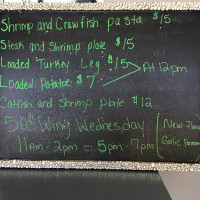 Shrimp and Crawfish pasta $15
Steak and Shrimp plate $15
Loaded Turkey Leg $15
At 12pm
Loaded Potatoe $7
Catfish and Shrimp plate $12
50¢ Wing Wednesday
11Am-2pm 5pm-7pm
New
Garlic